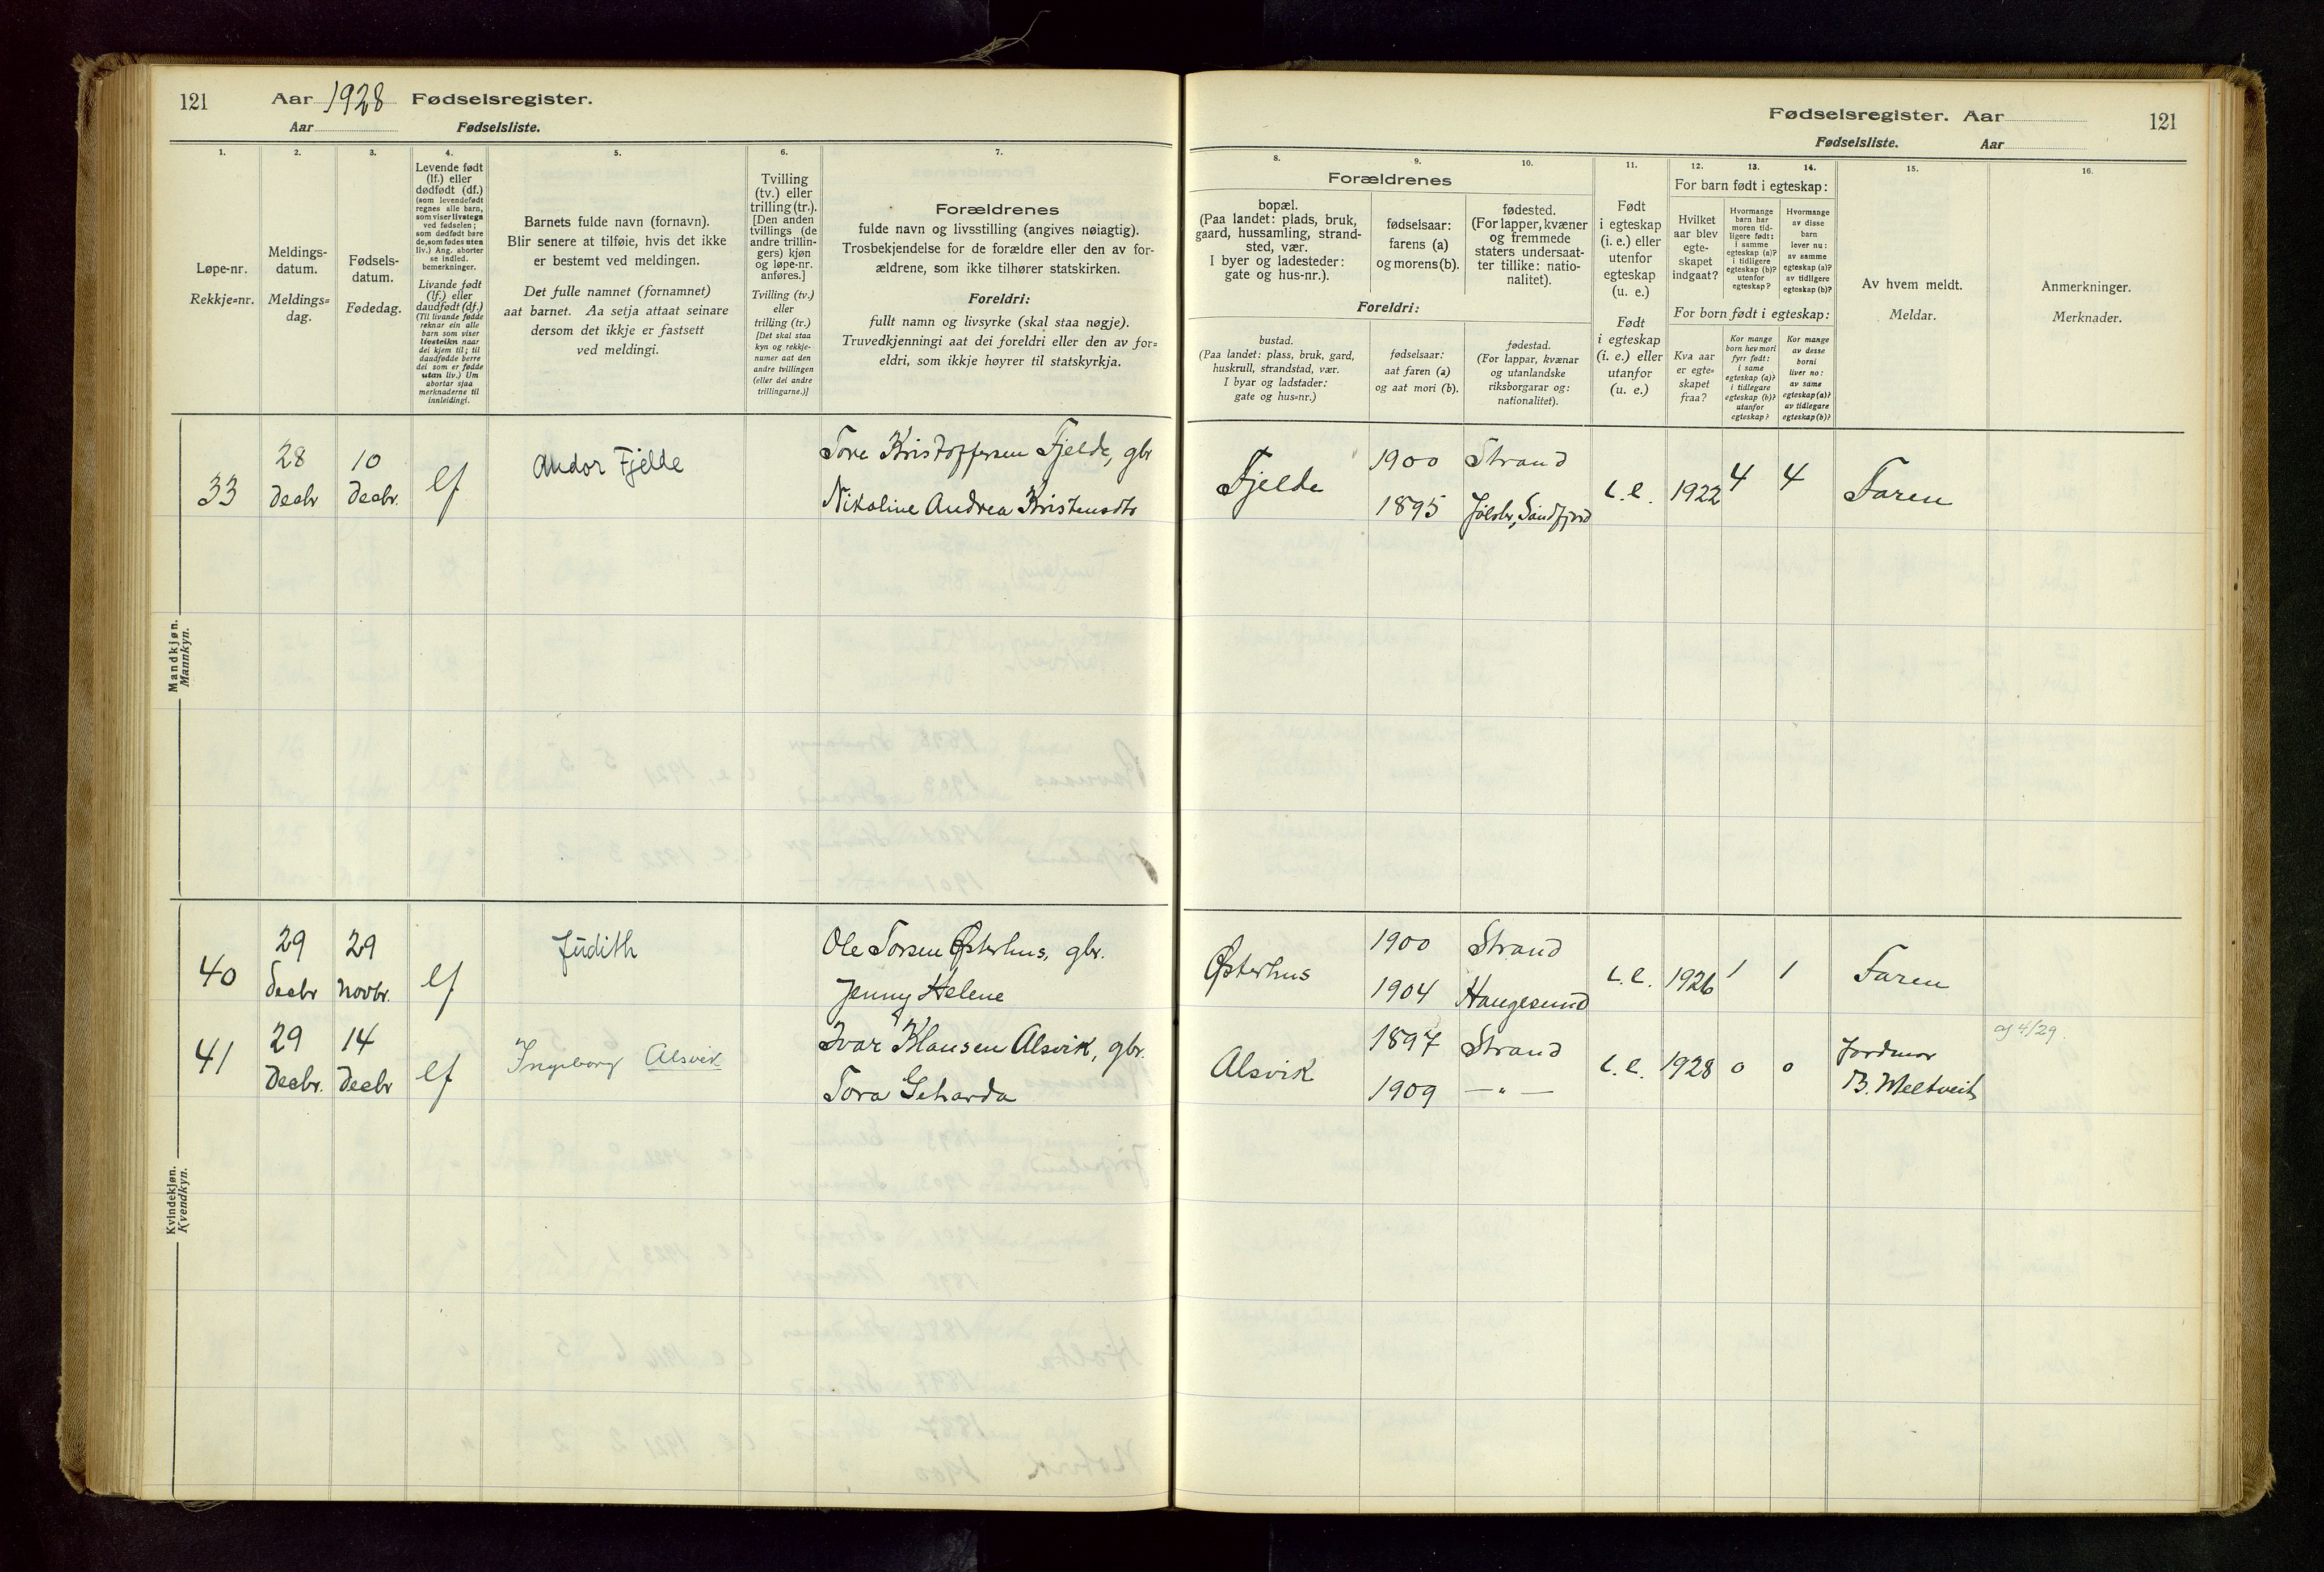 121 Aar 1928 Fødselsregister.
Aar Fødselsliste.
Fødselsregister. Aar 121
Fødselsliste. Aar
1.
Løpe-nr.
Rekkje=nr.
2.
Meldings-
datum.
Meldings=
dag.
3.
Fødsels-
datum.
Fødedag.
4.
Levende født
(lf.) eller
dødfødt (df.)
(som levendefødt
regnes alle barn,
som viser livstegn
ved fødselen;
som dødfødt bare
de, som fødes uten
liv.) Ang. aborter
se indled.
bemerkninger.
Livande født
(lf.) eller
daudfødt (df.)
(Til livande fødde
reknar ein alle
barn som viser
livsteikn naar
dei kjem til; til
daudfødde berre
dei som er fødde
utan liv.) Um
abortar sjaa
merknaderne til
innleidingi.
5.
Barnets fulde navn (fornavn).
Blir senere at tilføie, hvis det ikke
er bestemt ved meldingen.
Det fulle namnet (fornamnet)
aat barnet. Aa setja attaat seinare
dersom det ikkje er fastsett
ved meldingi.
6.
Tvilling
(tv.) eller
trilling (tr.).
[Den anden
tvillings (de
andre trillin-
gers) kjøn
og løpe-nr.
anføres.]
Tvilling (tv.)
eller
trilling (tr.)
[Det skal staa
kyn og rekkje-
numer aat den
andre tvillingen
(eller dei andre
trillingarne.)]
7.
Forældrenes
fulde navn og livsstilling (angives nøiagtig).
Trosbekjendelse for de forældre eller den av for-
ældrene, som ikke tilhører statskirken.
Foreldri:
fullt namn og livsyrke (skal staa nøgje).
Truvedkjenningi aat dei foreldri eller den av for=
eldri, som ikkje høyrer til statskyrkja.
Forældrenes
8.
bopæl.
(Paa landet: plads, bruk,
gaard, hussamling, strand-
sted, vær.
I byer og ladesteder:
gate og hus-nr.).
9.
fødselsaar:
farens (a)
og morens (b).
10.
fødested.
(For lapper, kvæner
og fremmede
staters undersaat-
ter tillike: natio-
nalitet).
Foreldri:
bustad.
(Paa landet: plass, bruk, gard,
huskrull, strandstad, vær.
I byar og ladstader:
gate og hus=nr.)
fødselsaar:
aat faren (a)
og aat mori (b).
fødestad.
(For lappar, kvænar
og utanlandske
riksborgarar og:
nationalitet).
11.
Født
i egteskap
(i. e.) eller
utenfor
egteskap
(u. e.)
Født
i egteskap
(i. e.) eller
utanfor
(u. e.)
12. 13. 14.
For barn født i egteskap:
Hvilket
aar blev
egte-
skapet
indgaat?
Hvormange
barn har
moren tid-
ligere født:
i samme
egteskap (a)?
i tidligere
egteskap (b)?
utenfor
egteskap?
Hvormange
av disse
barn
lever nu:
av samme
egteskap (a)?
av tidligere
egteskap (b)?
For born født i egteskap:
Kva aar
er egte=
skapet
fraa?
Kor mange
born hev mori
fyrr født:
i same
egteskap (a)?
i tidlegare
egteskap (b)?
utanfor
egteskap?
Kor mange
av desse
borni
liver no:
av same
egteskap (a)?
av tidlegare
egteskap (b)?
15.
Av hvem meldt.
Meldar.
16.
Anmerkninger.
Merknader.
Mandkjøn.
Mannkyn.
33 28 Decbr 10 Decbr. lf Andor Fjelde
Tore Kristoffersen Fjelde, gbr
Nikoline Andrea Kristensdtr
Fjelde 1900 Strand
1895 Sundfjord
i.e. 1922 4 4 Faren
Kvindekjøn.
Kvendkyn.
40 29 Decbr 29 Novbr. lf Judith
Ole Torsen Østerhus, gbr.
Jenny Helene
Østerhus 1900 Strand
1904 Haugesund
i.e. 1926 1 1 Faren
41 29 Decbr. 14 Decbr lf Ingeborg Alsvik
Ivar Klausen Alsvik, gbr.
Tora Geharda
Alsvik 1897 Strand
1909 — " —
i.e. 1928 0 0 Jordmor
B. Meltveit
4/29.